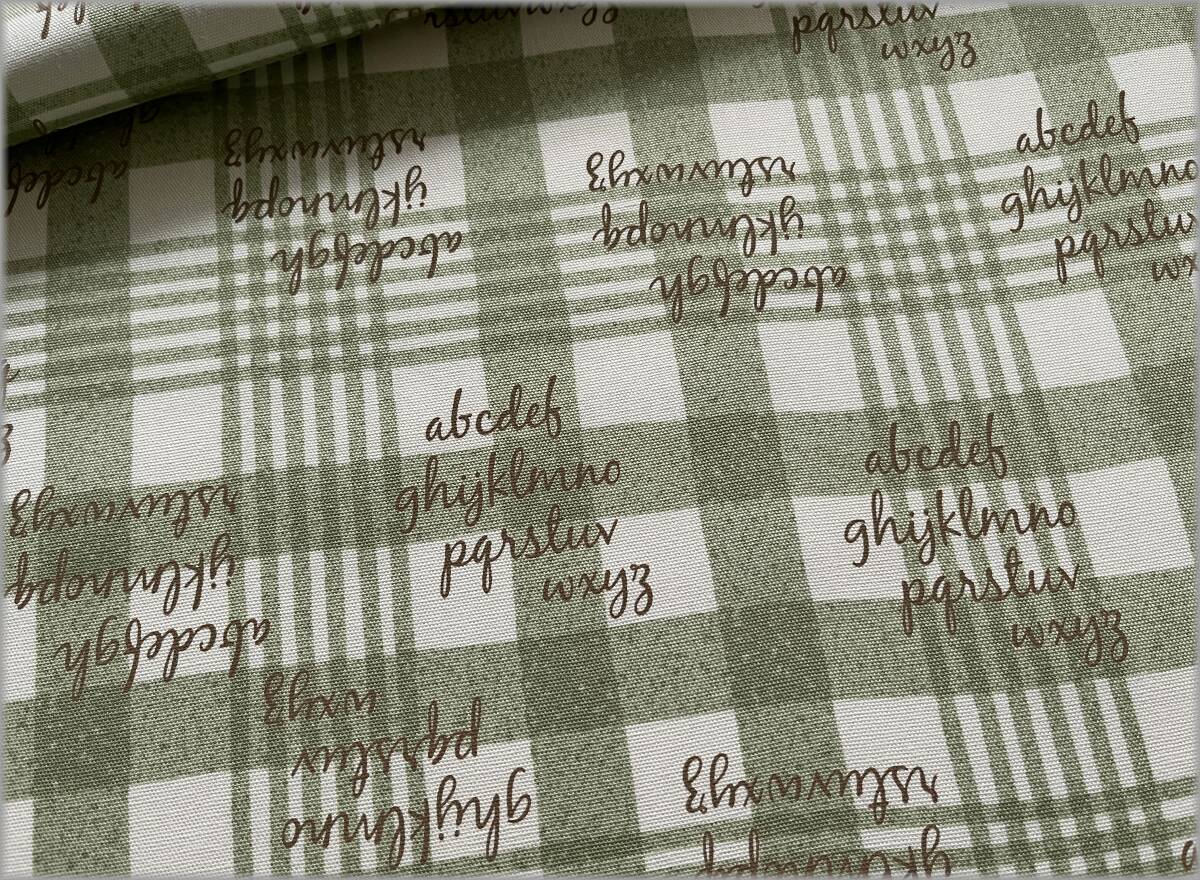 pqrstuv
wxyz
abcdefgh
ijklmnopq
rstuvwxyz
abcdefgh
ijklmnopq
rstuvwxyz
abcdef
ghijklmno
pqrstuv
abcdef
ghijklmno
pqrstuv
wxyz
abcdef
ghijklmno
pqrstuv
wxyz
abcdefgh
ijklmnopq
rstuvwxyz
ghijklmno
pqrstuv
wxyz
rstuvwxyz